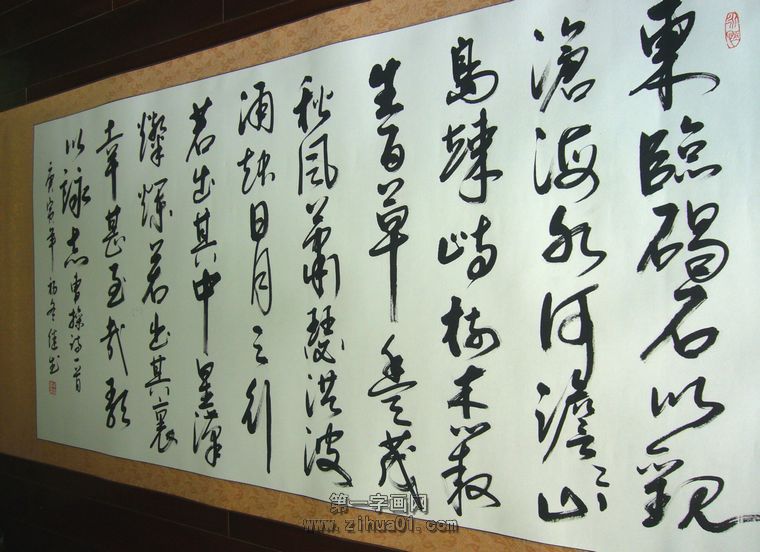 東臨碣石以觀
滄海水何澹澹山
島竦峙樹木叢
生百草豐茂
秋風蕭瑟洪波
涌起日月之行
若出其中星漢
燦爛若出其裏
幸甚至哉歌
以詠志 曹操詩一首
庚寅年
第一字画网
www.zihua01.com